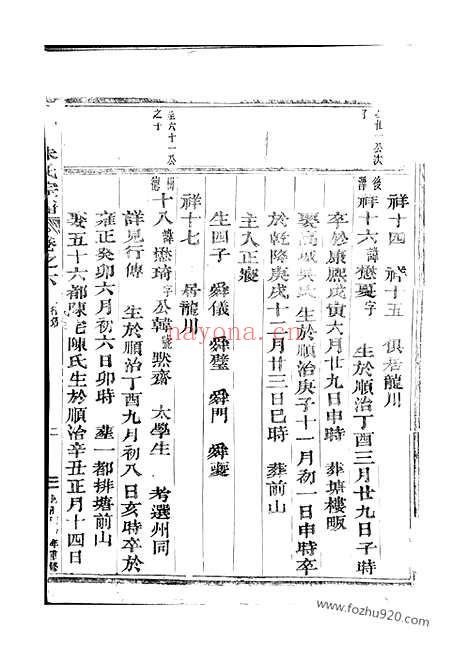 祥十四 祥十五 俱居龍川
祥十六 諱懋夏 字 生於順治丁酉三月廿九日子時
卒於康熙戊寅六月廿九日申時 葬塘樓畈
娶高城吳氏 生於順治庚子十一月初一日申時卒
於乾隆庚戌十二月廿三日巳時 葬前山
主人正寢
生四子 舜儀 舜璧 舜門 舜夔
祥十七 居龍川
十八 諱懋琦 字公韓 號黙齋 太學生 考選州同
詳見行傳 生於順治丁酉九月初八日亥時卒於
雍正癸卯六月初六日卯時 葬一都排塘前山
娶五十六都陳宅陳氏生於順治辛丑正月十四日
朱氏宗譜 卷之六
nayona.cn
www.fozhu920.com